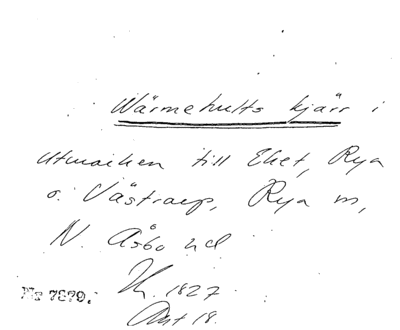 Wärmehults kjärr i
utmarken till Eket, Rya
o. Västraup, Rya m,
N. Åsbo hd
1827
18.
Nr 7879.